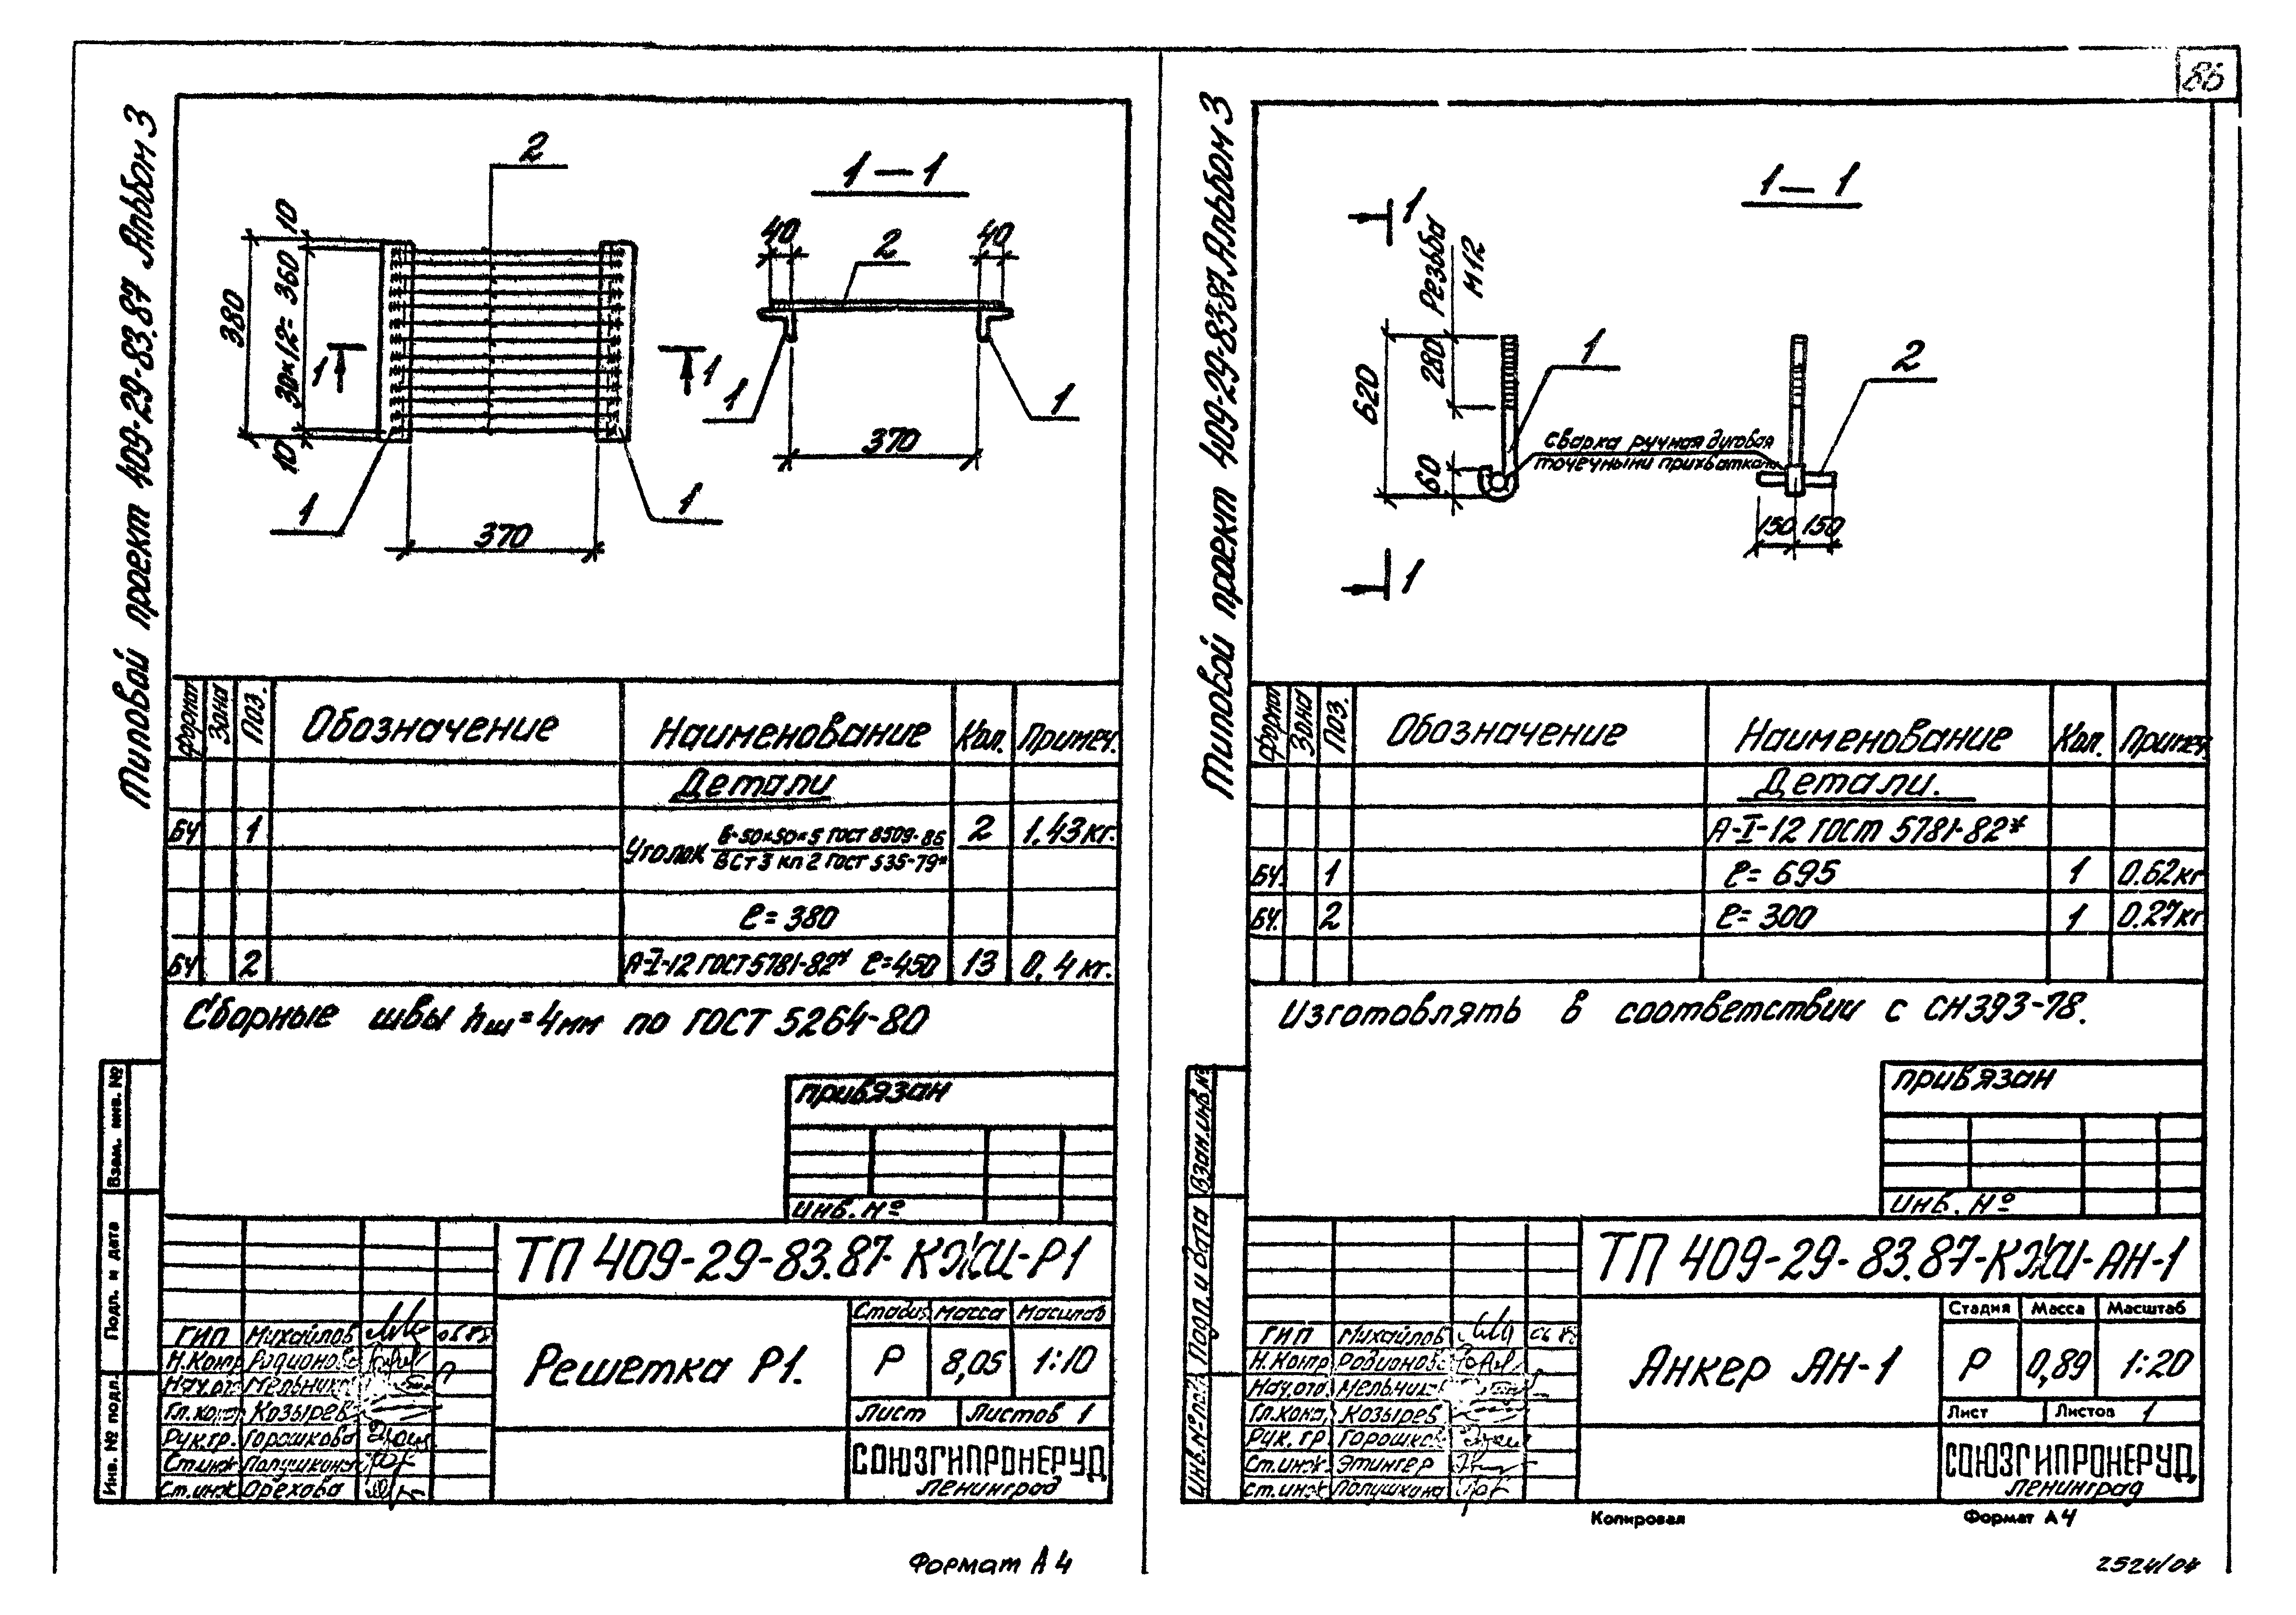 86
Типовой проект 409-29-83.87 Альбом 3
2
1—1
10
380
30×12=360
10
1
1
1
1
370
40
40
2
1
1
370
Формат
Зона
Поз.
Обозначение
Наименование
Кол.
Примеч.
Детали
БЧ 1 Уголок Б-50×50×5 ГОСТ 8509-86 2 1.43кг.
ВСт3 кп2 ГОСТ 535-79*
ℓ=380
БЧ 2 А-I-12 ГОСТ 5781-82* ℓ=450 13 0,4кг.
Сборные швы hш=4мм по ГОСТ 5264-80
привязан
инв. №
Взам. инв. №
Подп. и дата
Инв. № подл.
ТП 409-29-83.87-КЖИ-Р1
Решетка Р1.
Стадия Масса Масштаб
Р 8,05 1:10
Лист Листов 1
СОЮЗГИПРОНЕРУД
Ленинград
ГИП Михайлов
Н.Контр Родионова
Нач.отд Мельников
Гл.констр Козырев
Рук.гр. Горошкова
Ст.инж Полушкина
Ст.инж Орехова
Формат А4
Типовой проект 409-29-83-87. Альбом 3
1
1
1—1
Резьба
М12
620
280
60
1
2
сварка ручная дуговая
точечными прихватками
150 150
Формат
Зона
Поз.
Обозначение
Наименование
Кол.
Примеч.
Детали.
А-I-12 ГОСТ 5781-82*
БЧ. 1 ℓ=695 1 0.62кг
БЧ. 2 ℓ=300 1 0.27кг
Изготовлять в соответствии с СН393-78.
привязан
инв. №
Взам. инв. №
Подп. и дата
Инв. № подл.
ТП 409-29-83.87-КЖИ-АН-1
Анкер АН-1
Стадия Масса Масштаб
Р 0,89 1:20
Лист Листов 1
СОЮЗГИПРОНЕРУД
Ленинград
ГИП Михайлов
Н.Контр Родионова
Нач.отд. Мельников
Гл.конс. Козырев
Рук. гр Горошкова
Ст.инж. Этингер
Ст.инж Полушкина
Копировал
Формат А4
2524/04